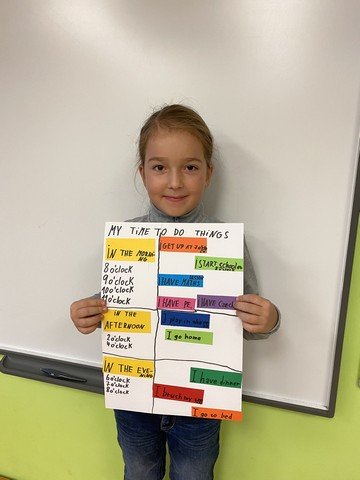 MY TIME TO DO THINGS
IN THE MORNI-
NG
I GET UP AT
I START school on
8 o'clock
9 o'clock
I HAVE MATHS
10 o'clock
I HAVE PE.
I HAVE Czech
o'clock
IN THE
AFTERNOON
I play in
I go home
2 o'clock
4 o'clock
IN THE EVE-
NING
I have dinner
6 o'clock
7 o'clock
8 o'clock
I brush my
I go to bed